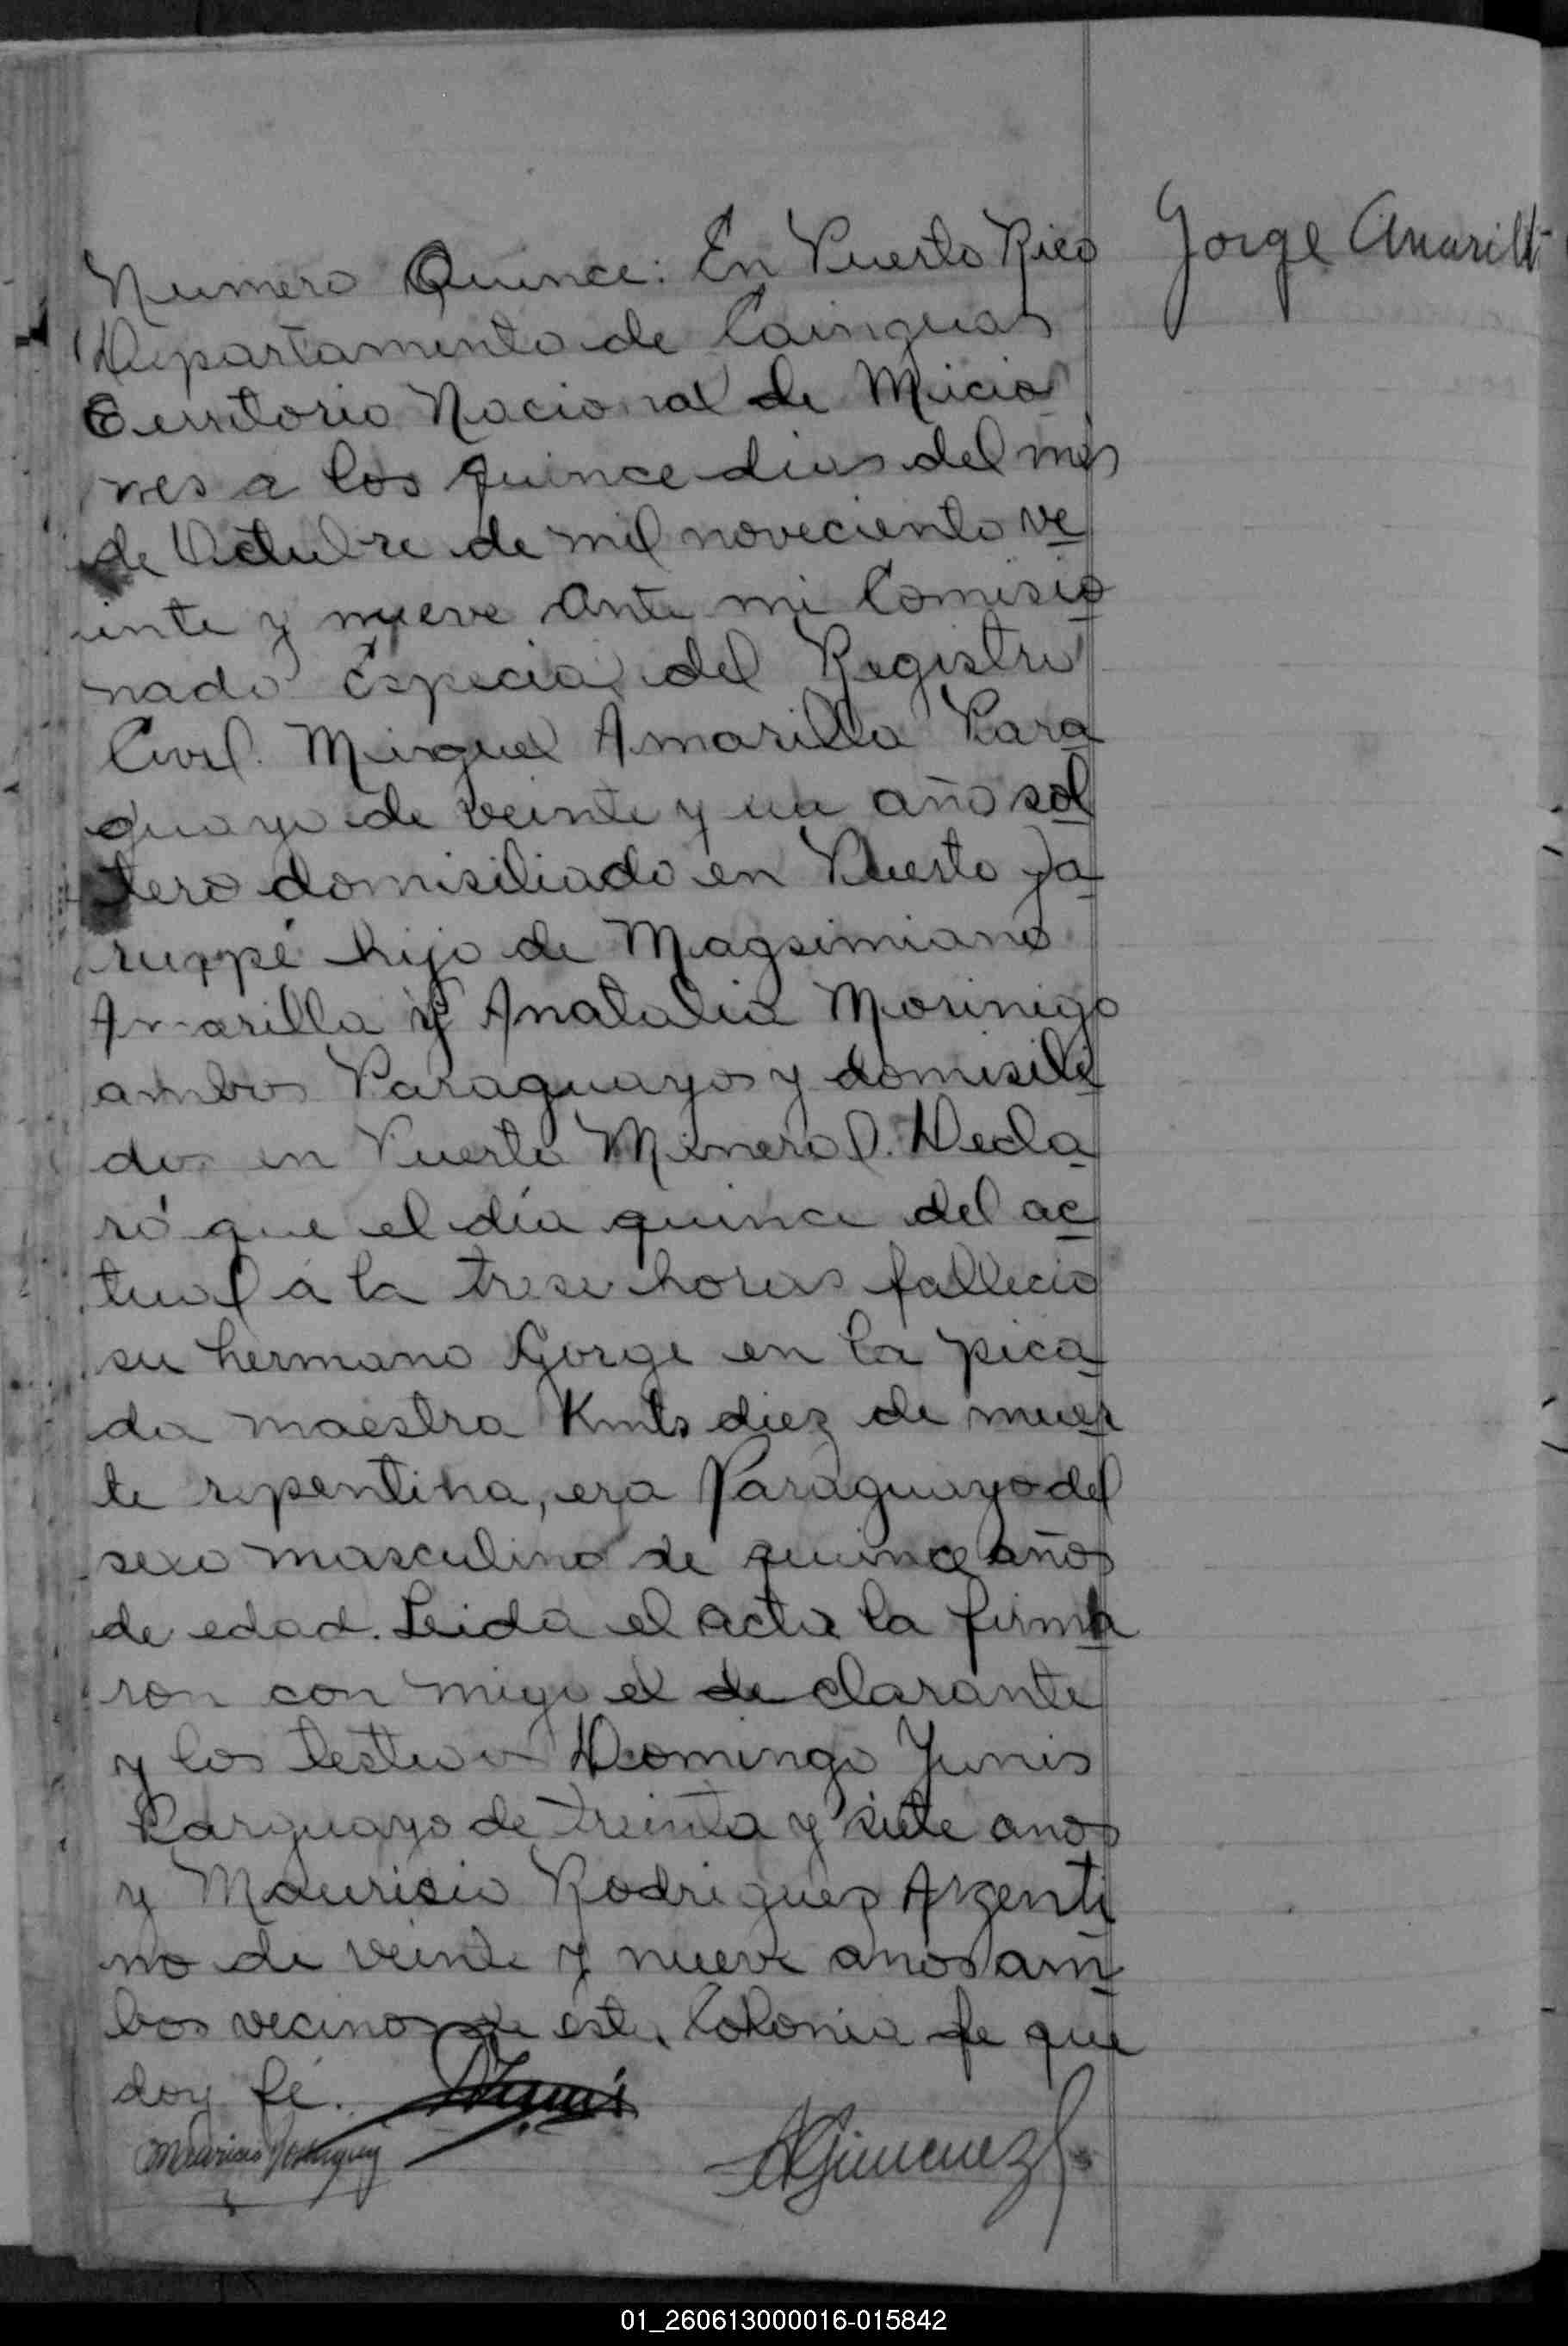 Jorge Amarill
Numero Quince: En Puerto Rico
Departamento de Cainguas
Territorio Nacional de Micio
nes a los quince dias del mes
de Octubre de mil noveciento ve
inte y nueve ante mi Comisio
nado Especial del Registro
Civil. Miguel Amarilla Para
guayo de veinte y un año sol
tero domisiliado en Puerto Ja
ruppé hijo de Magsimiano
Amarilla y Anatalia Morinigo
ambos Paraguayos y domisili
dos en Puerto Mineral. Decla
ró que el día quince del ac
tual á la trese horas fallecio
su hermano Gorge en la pica
da maestra Kmts diez de muer
te repentina, era Paraguayo del
sexo masculino de quince años
de edad. Leida el acta la firma
ron con migo el de clarante
y los testigos Domingo Yunis
Parguayo de treinta y siete anos
y Maurisio Rodriguez Argenti
no de veinte y nueve anos am
bos vecinos de esta Colonia de que
doy fé. DYunis
Mauricio Rodriguez
AGimenez
01_260613000016-015842